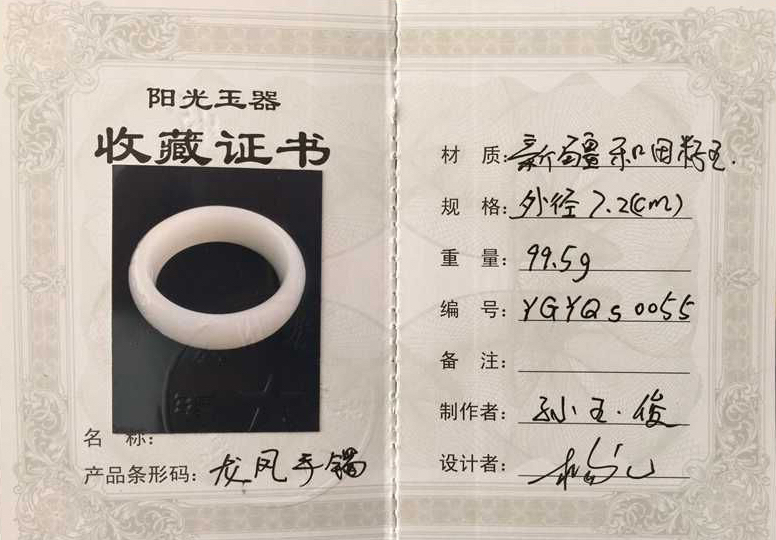 阳光玉器
收藏证书
名 称：
产品条形码：龙凤手镯
材 质：新疆和田籽玉.
规 格：外径7.2(cm)
重 量：99.5g
编 号：YGYQS0055
备 注：
制作者：孙玉·俊
设计者：